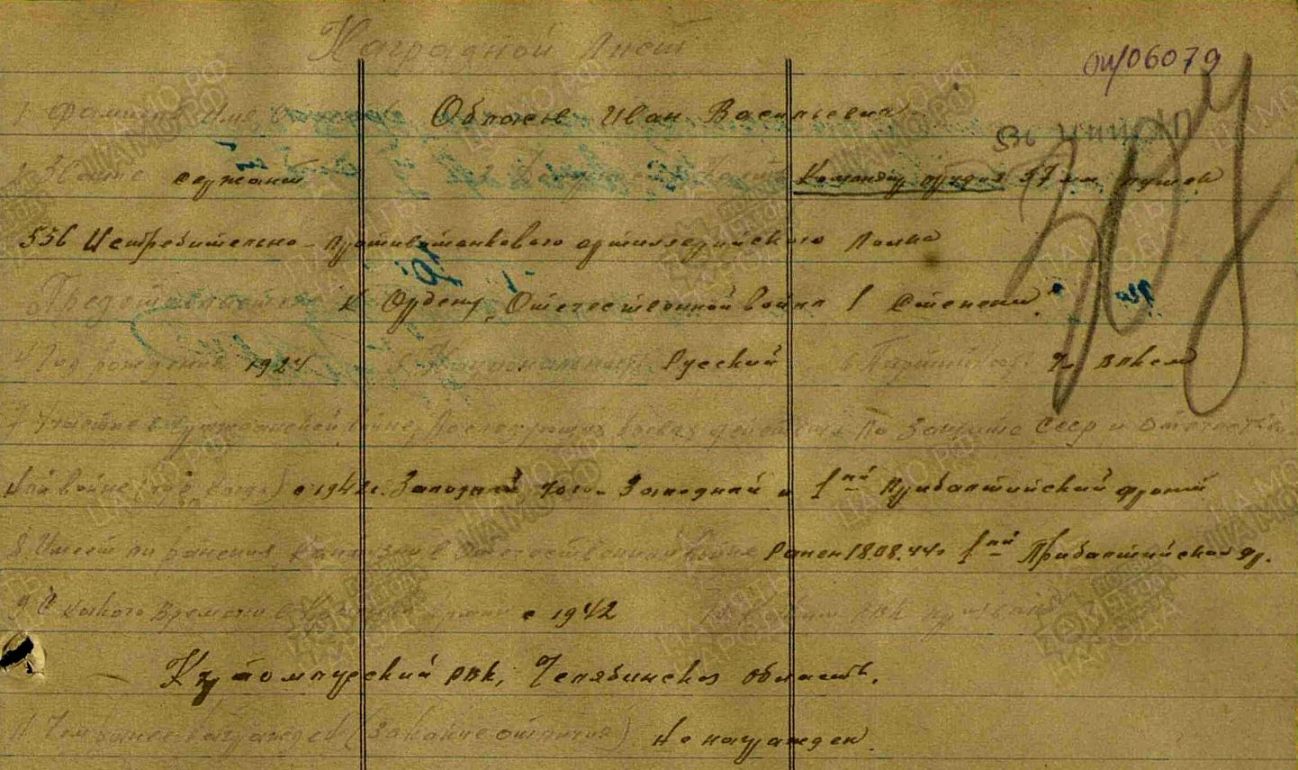 Наградной лист
1. Фамилия, Имя, Отчество Иван Васильевич
2. Звание сержант 3. Командир орудия 57 мм пушек
556 Истребительно-противотанкового артиллерийского полка
Представляется к Ордену „Отечественной война I степени."
4. Год рождения 1924 5. Национальность Русский 6. Партийность
7. Участие в гражданской войне, последующих боевых действиях по защите СССР и отечествен
ной войне с 1942г. Западный Юго-Западный и 1ый Прибалтийский фронт
8. Имеет ли ранения и контузии в отечественной войне Ранен 18.08.44г 1ый Прибалтийский фр.
9. С какого времени в Красной армии с 1942 10. Каким РВК призван
РВК, Челябинская область.
11. Чем ранее награжден (За какие отличия) Не награжден.